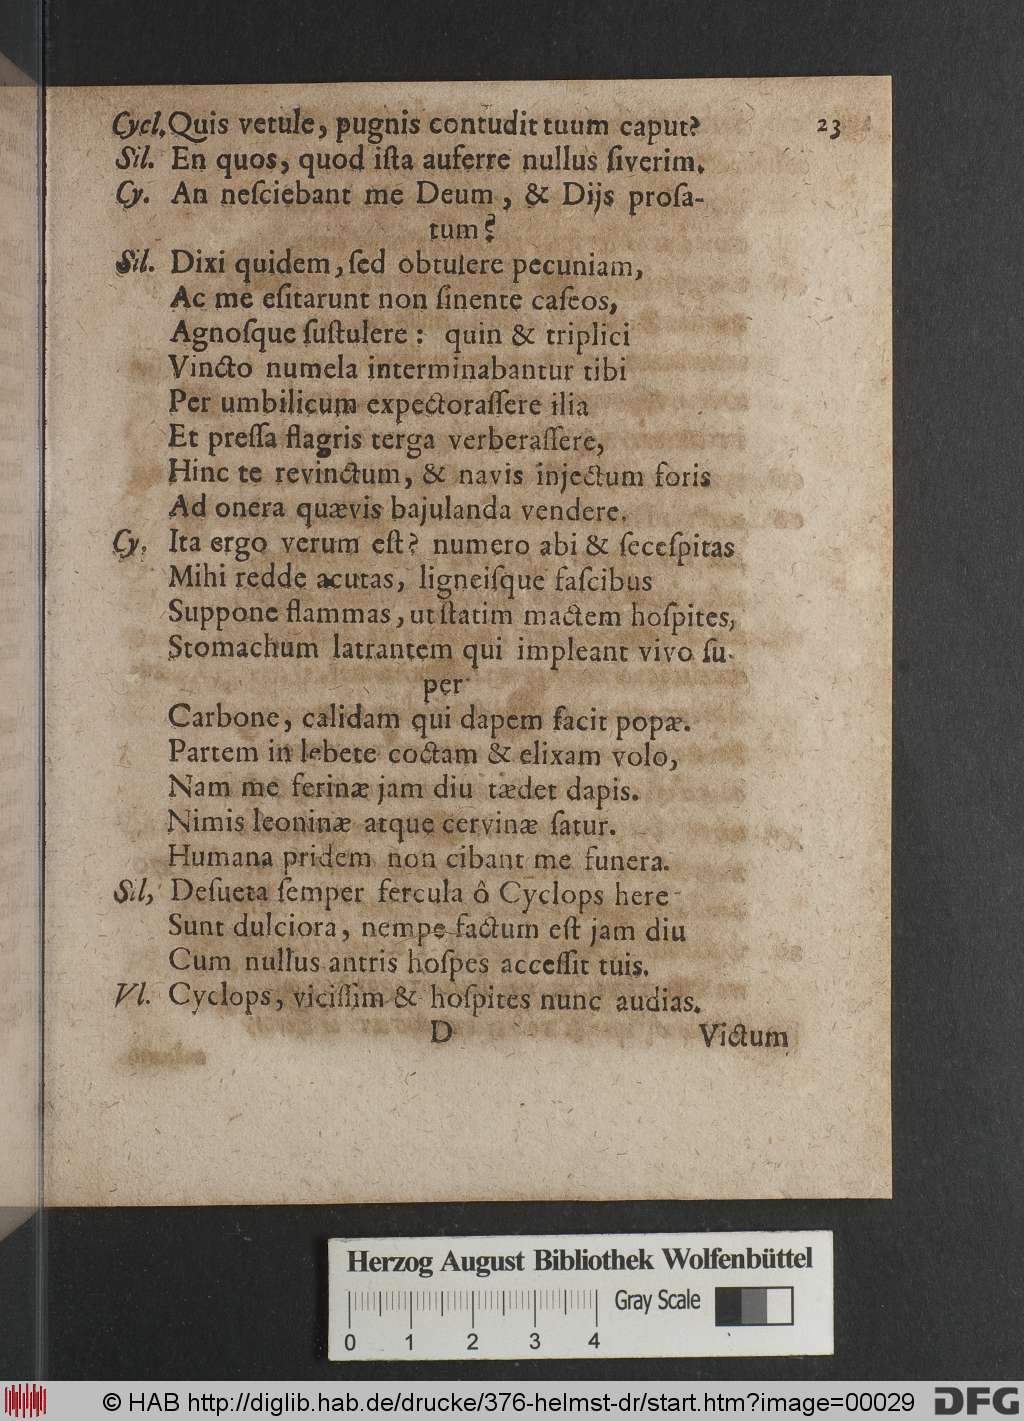 Cycl. Quis vetule, pugnis contudit tuum caput? 23
Sil. En quos, quod iſta auferre nullus ſiverim.
Cy. An neſciebant me Deum, & Dijs proſa-
tum?
Sil. Dixi quidem, ſed obtulere pecuniam,
Ac me eſitarunt non ſinente caſeos,
Agnoſque ſuſtulere: quin & triplici
Vincto numela interminabantur tibi
Per umbilicum expectoraſſere ilia
Et preſſa flagris terga verberaſſere,
Hinc te revinctum, & navis injectum foris
Ad onera quævis bajulanda vendere.
Cy. Ita ergo verum eſt? numero abi & ſeceſpitas
Mihi redde acutas, ligneiſque faſcibus
Suppone flammas, ut ſtatim mactem hoſpites,
Stomachum latrantem qui impleant vivo ſu-
per
Carbone, calidam qui dapem facit popæ.
Partem in lebete coctam & elixam volo,
Nam me ferinæ jam diu tædet dapis.
Nimis leoninæ atque cervinæ ſatur.
Humana pridem non cibant me funera.
Sil, Deſueta ſemper fercula ô Cyclops here
Sunt dulciora, nempe factum eſt jam diu
Cum nullus antris hoſpes acceſſit tuis.
Vl. Cyclops, viciſſim & hoſpites nunc audias.
D Victum
Herzog August Bibliothek Wolfenbüttel
Gray Scale
0 1 2 3 4
© HAB http://diglib.hab.de/drucke/376-helmst-dr/start.htm?image=00029 DFG